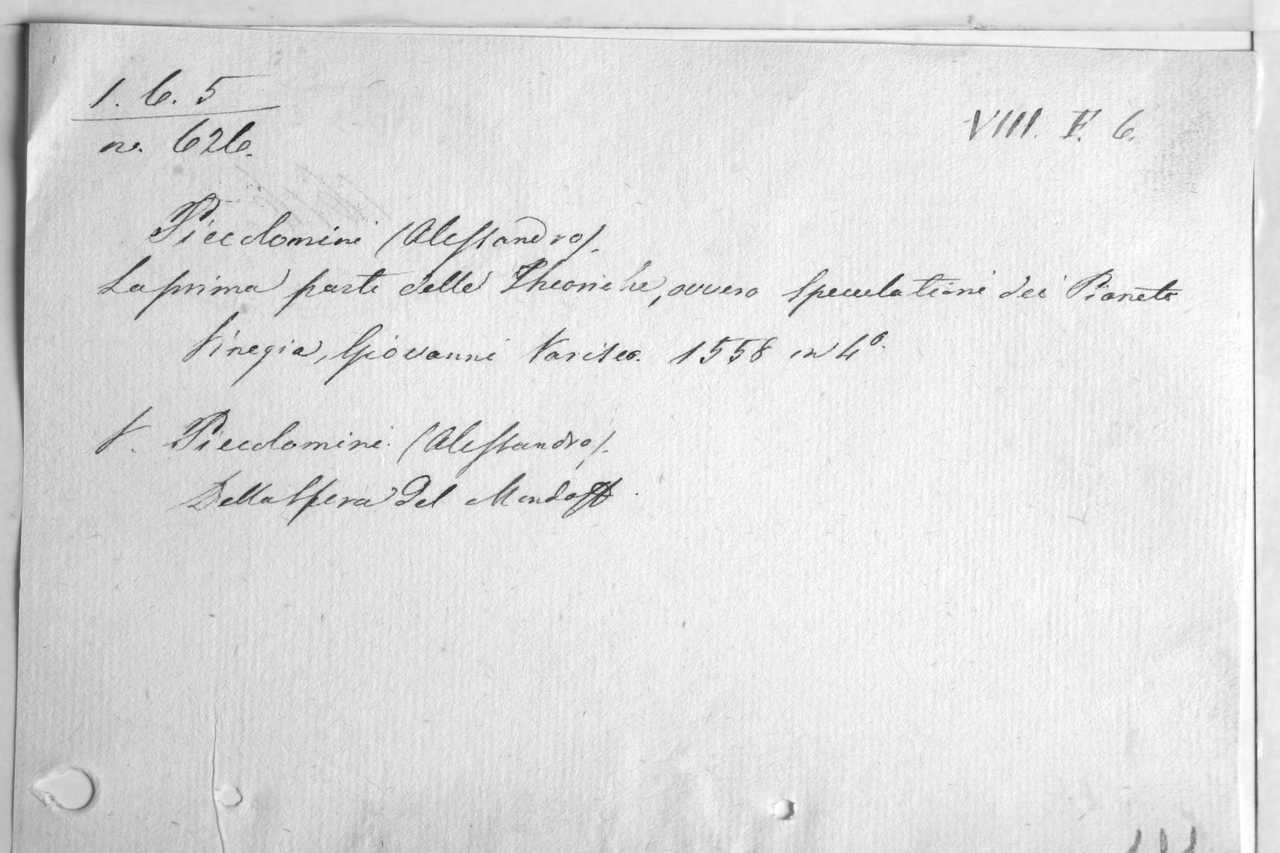 1. 6. 5
no. 626.
VIII. F. 6.
Piccolomini (Alessandro).
La prima parte delle Theoriche, ovvero Speculationi dei Pianeti
Vinegia, Giovanni Varisco. 1558 in 4º.
V. Piccolomini (Alessandro).
Della Sfera del Mondo